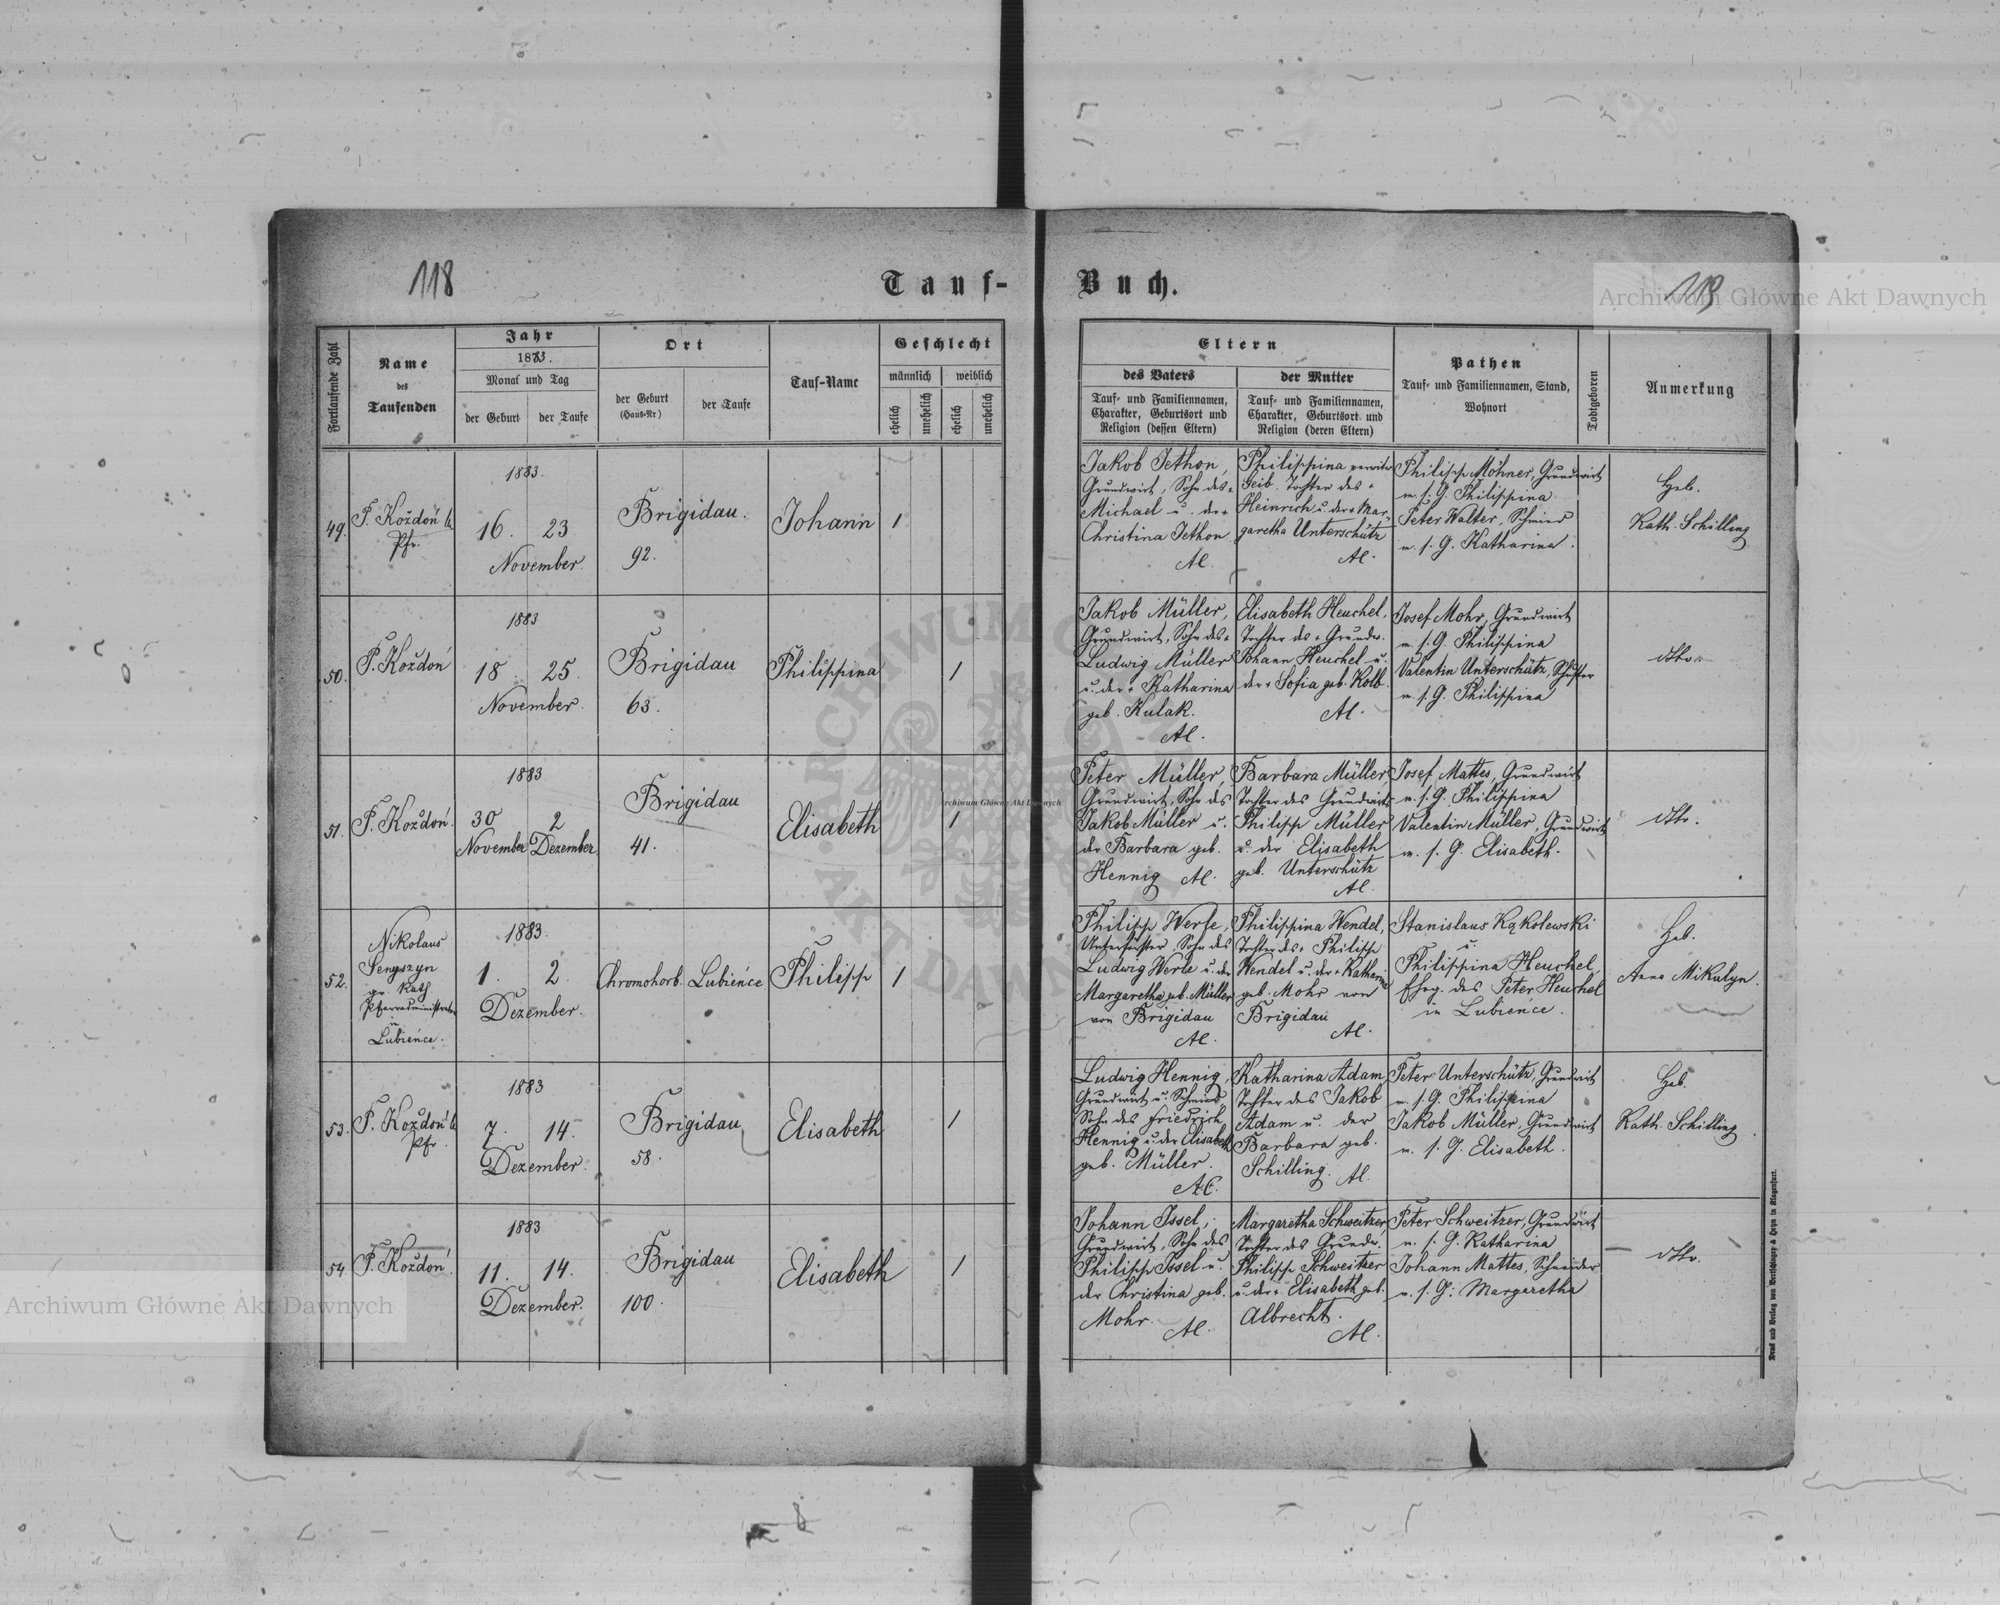 118
Tauf-
Buch.
119
Archiwum Główne Akt Dawnych
Fortlaufende Zahl
Name
des
Taufenden
Jahr
1883.
Monat und Tag
der Geburt
der Taufe
Ort
der Geburt
(Haus-Nr)
der Taufe
Tauf-Name
Geschlecht
männlich
weiblich
ehelich
unehelich
ehelich
unehelich
Eltern
des Vaters
Tauf- und Familiennamen,
Charakter, Geburtsort und
Religion (dessen Eltern)
der Mutter
Tauf- und Familiennamen,
Charakter, Geburtsort und
Religion (deren Eltern)
Pathen
Tauf- und Familiennamen, Stand,
Wohnort
Todtgeboren
Anmerkung
49.
F. Koždoń
Pfr.
1883.
16. 23
November.
Brigidau.
92.
Johann
1
Jakob Jethon,
Grundwirt, Sohn des +
Michael u. der +
Christina Jethon.
AC.
Philippina verwitw.
Geib. Tochter des +
Heinrich u. der + Mar-
garetha Unterschütz
AC.
Philipp Möhner, Grundwirt
m. s. G. Philippina
Peter Walter, Schmied
m. s. G. Katharina.
Heb.
Kath. Schilling
50.
F. Koždoń
1883
18. 25.
November.
Brigidau
63.
Philippina
1
Jakob Müller,
Grundwirt, Sohn des +
Ludwig Müller
u. der + Katharina
geb. Kulak.
AC.
Elisabeth Heuchel,
Tochter des + Grundw.
Johann Heuchel u.
der + Sofia geb. Kolb.
AC.
Josef Mohr, Grundwirt
m. s. G. Philippina
Valentin Unterschütz, Schuster
m. s. G. Philippina
dtto.
51.
F. Koždoń.
1883
30 2
November Dezember.
Brigidau
41.
Elisabeth
1
Peter Müller,
Grundwirt, Sohn des
Jakob Müller u.
der Barbara geb.
Hennig AC.
Barbara Müller
Tochter des Grundwirts
Philipp Müller
u. der Elisabeth
geb. Unterschütz
AC.
Josef Mattes, Grundwirt
m. s. G. Philippina
Valentin Müller, Grundwirt
m. s. G. Elisabeth.
dtto.
52.
Nikolaus
Senyszyn
gr. Kath
Pfarradministrator
in
Lubieńce.
1883.
1. 2.
Dezember.
Chromohorb.
Lubieńce
Philipp
1
Philipp Werle,
Unterförster, Sohn des
Ludwig Werle u. der
Margaretha geb. Müller
von Brigidau
AC.
Philippina Wendel,
Tochter des + Philipp
Wendel u. der + Katharina
geb. Mohr von
Brigidau
AC.
Stanislaus Kąkolewski
u.
Philippina Heuchel,
Eheg. des Peter Heuchel
in Lubieńce.
Heb.
Anna Mikulyn.
53.
F. Koždoń
Pfr.
1883
7. 14.
Dezember.
Brigidau
58.
Elisabeth
1
Ludwig Hennig,
Grundwirt u. Schmied
Sohn des Friedrich
Hennig u. der Elisabeth
geb. Müller.
A.C.
Katharina Adam
Tochter des Jakob
Adam u. der
Barbara geb.
Schilling. AC.
Peter Unterschütz, Grundwirt
m. s. G. Philippina
Jakob Müller, Grundwirt
m. s. G. Elisabeth.
Heb.
Kath. Schilling.
54.
F. Koždoń.
1883
11. 14.
Dezember.
Brigidau
100.
Elisabeth
1
Johann Issel,
Grundwirt, Sohn des
Philipp Issel u.
der Christina geb.
Mohr. AC.
Margaretha Schweitzer
Tochter des Grundw.
Philipp Schweitzer
u. der + Elisabeth geb.
Albrecht.
AC.
Peter Schweitzer, Grundwirt
m. s. G. Katharina
Johann Mattes, Schneider
m. s. G. Margaretha
dtto.
Archiwum Główne Akt Dawnych
Archiwum Główne Akt Dawnych
ARCHIWUM GŁÓWNE AKT DAWNYCH